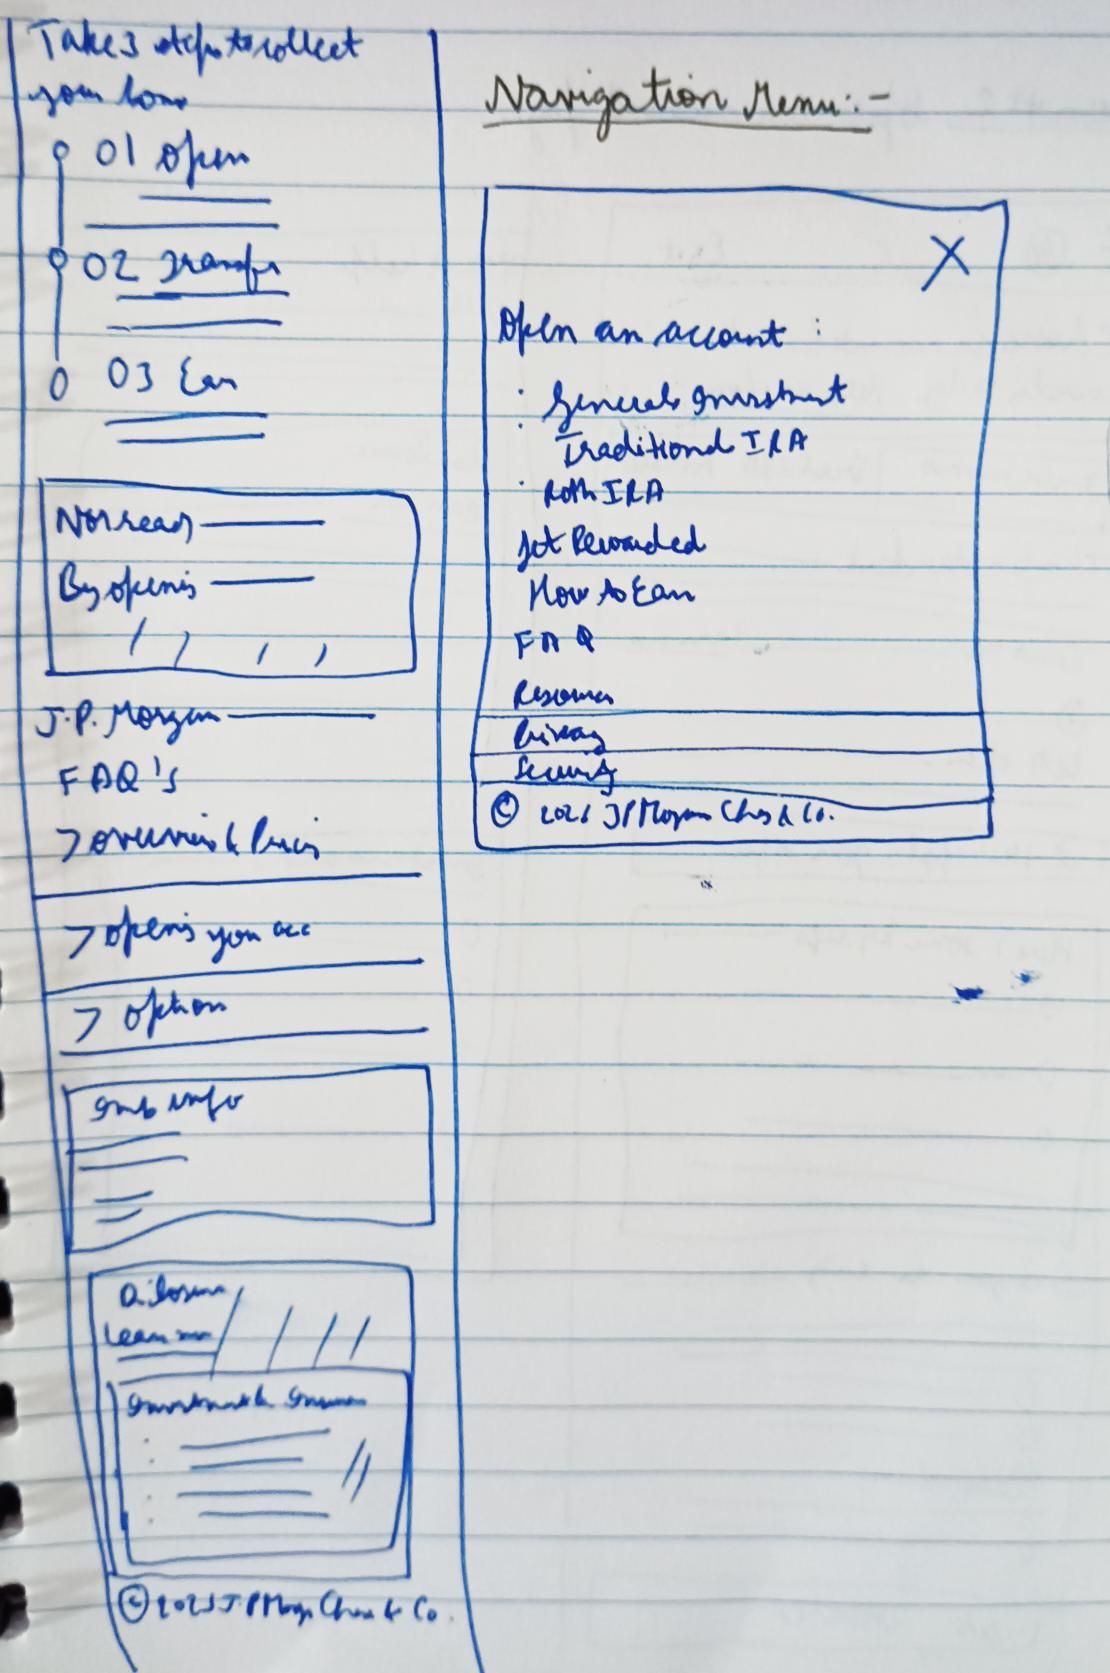 Take 3 steps to collect
your
01 Open
02 Transfer
03 Ean
By openis
J.P. Morgan
FAQ's
> Overview & Pricis
> openis you acc
> option
Imp info
Learn
Investment & Insurance
© 2025 J.P Morgan Chase & Co.
Navigation Menu:-
X
Open an account :
: General Investment
Traditional IRA
Roth IRA
Get Rewarded
How to Ean
FAQ
Resources
Privacy
Security
© JP Morgan Chas & Co.